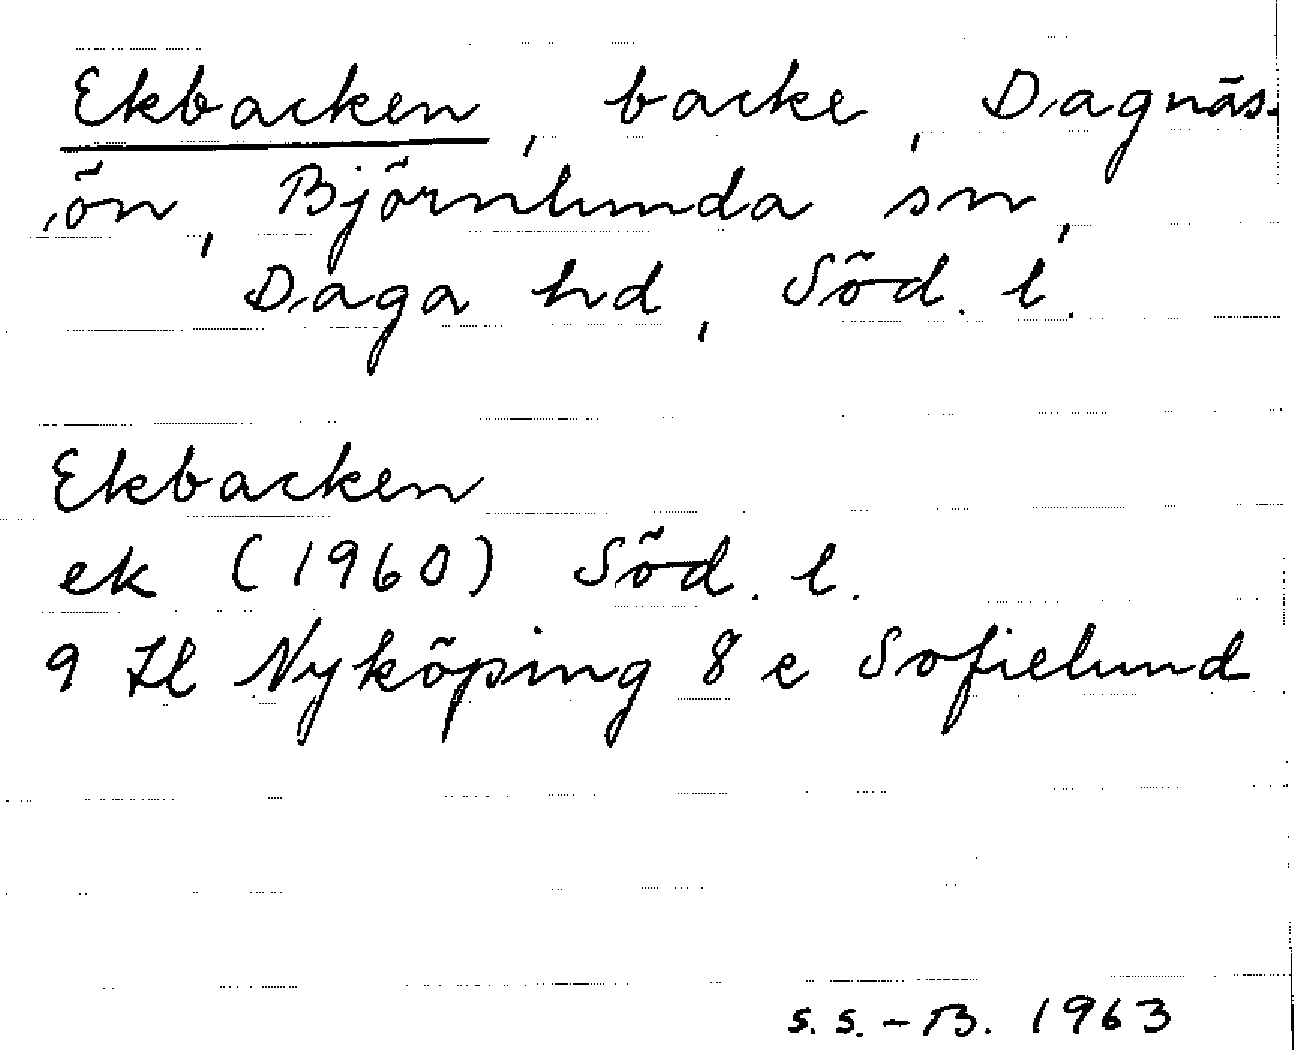 Ekbacken, backe, Dagnäs-
ön, Björnlunda sn,
Daga hd, Söd. l.
Ekbacken
ek (1960) Söd. l.
9 Il Nyköping 8 e Sofielund
S. S. - B. 1963